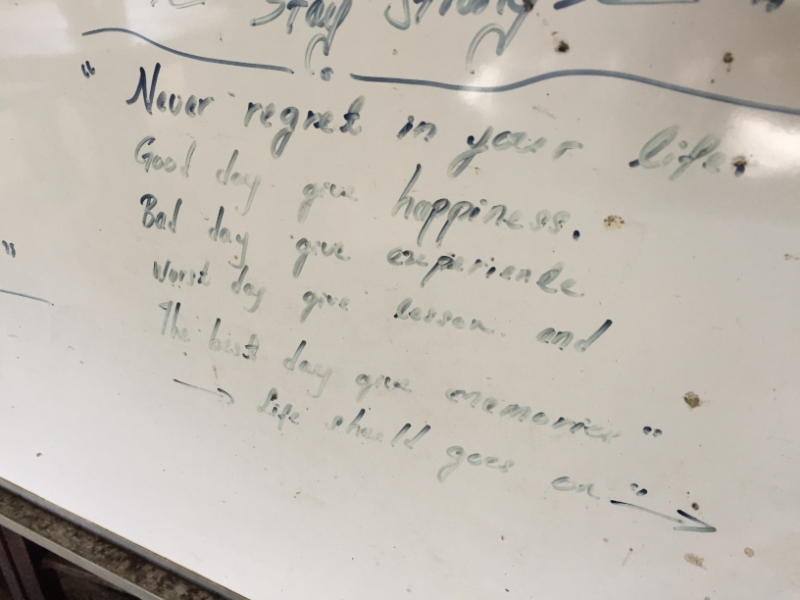 Stay Strong
" Never regret in your life.
Good day give happiness.
Bad day give experience
Worst day give lesson and
The best day give memories"
→ Life should goes on " →